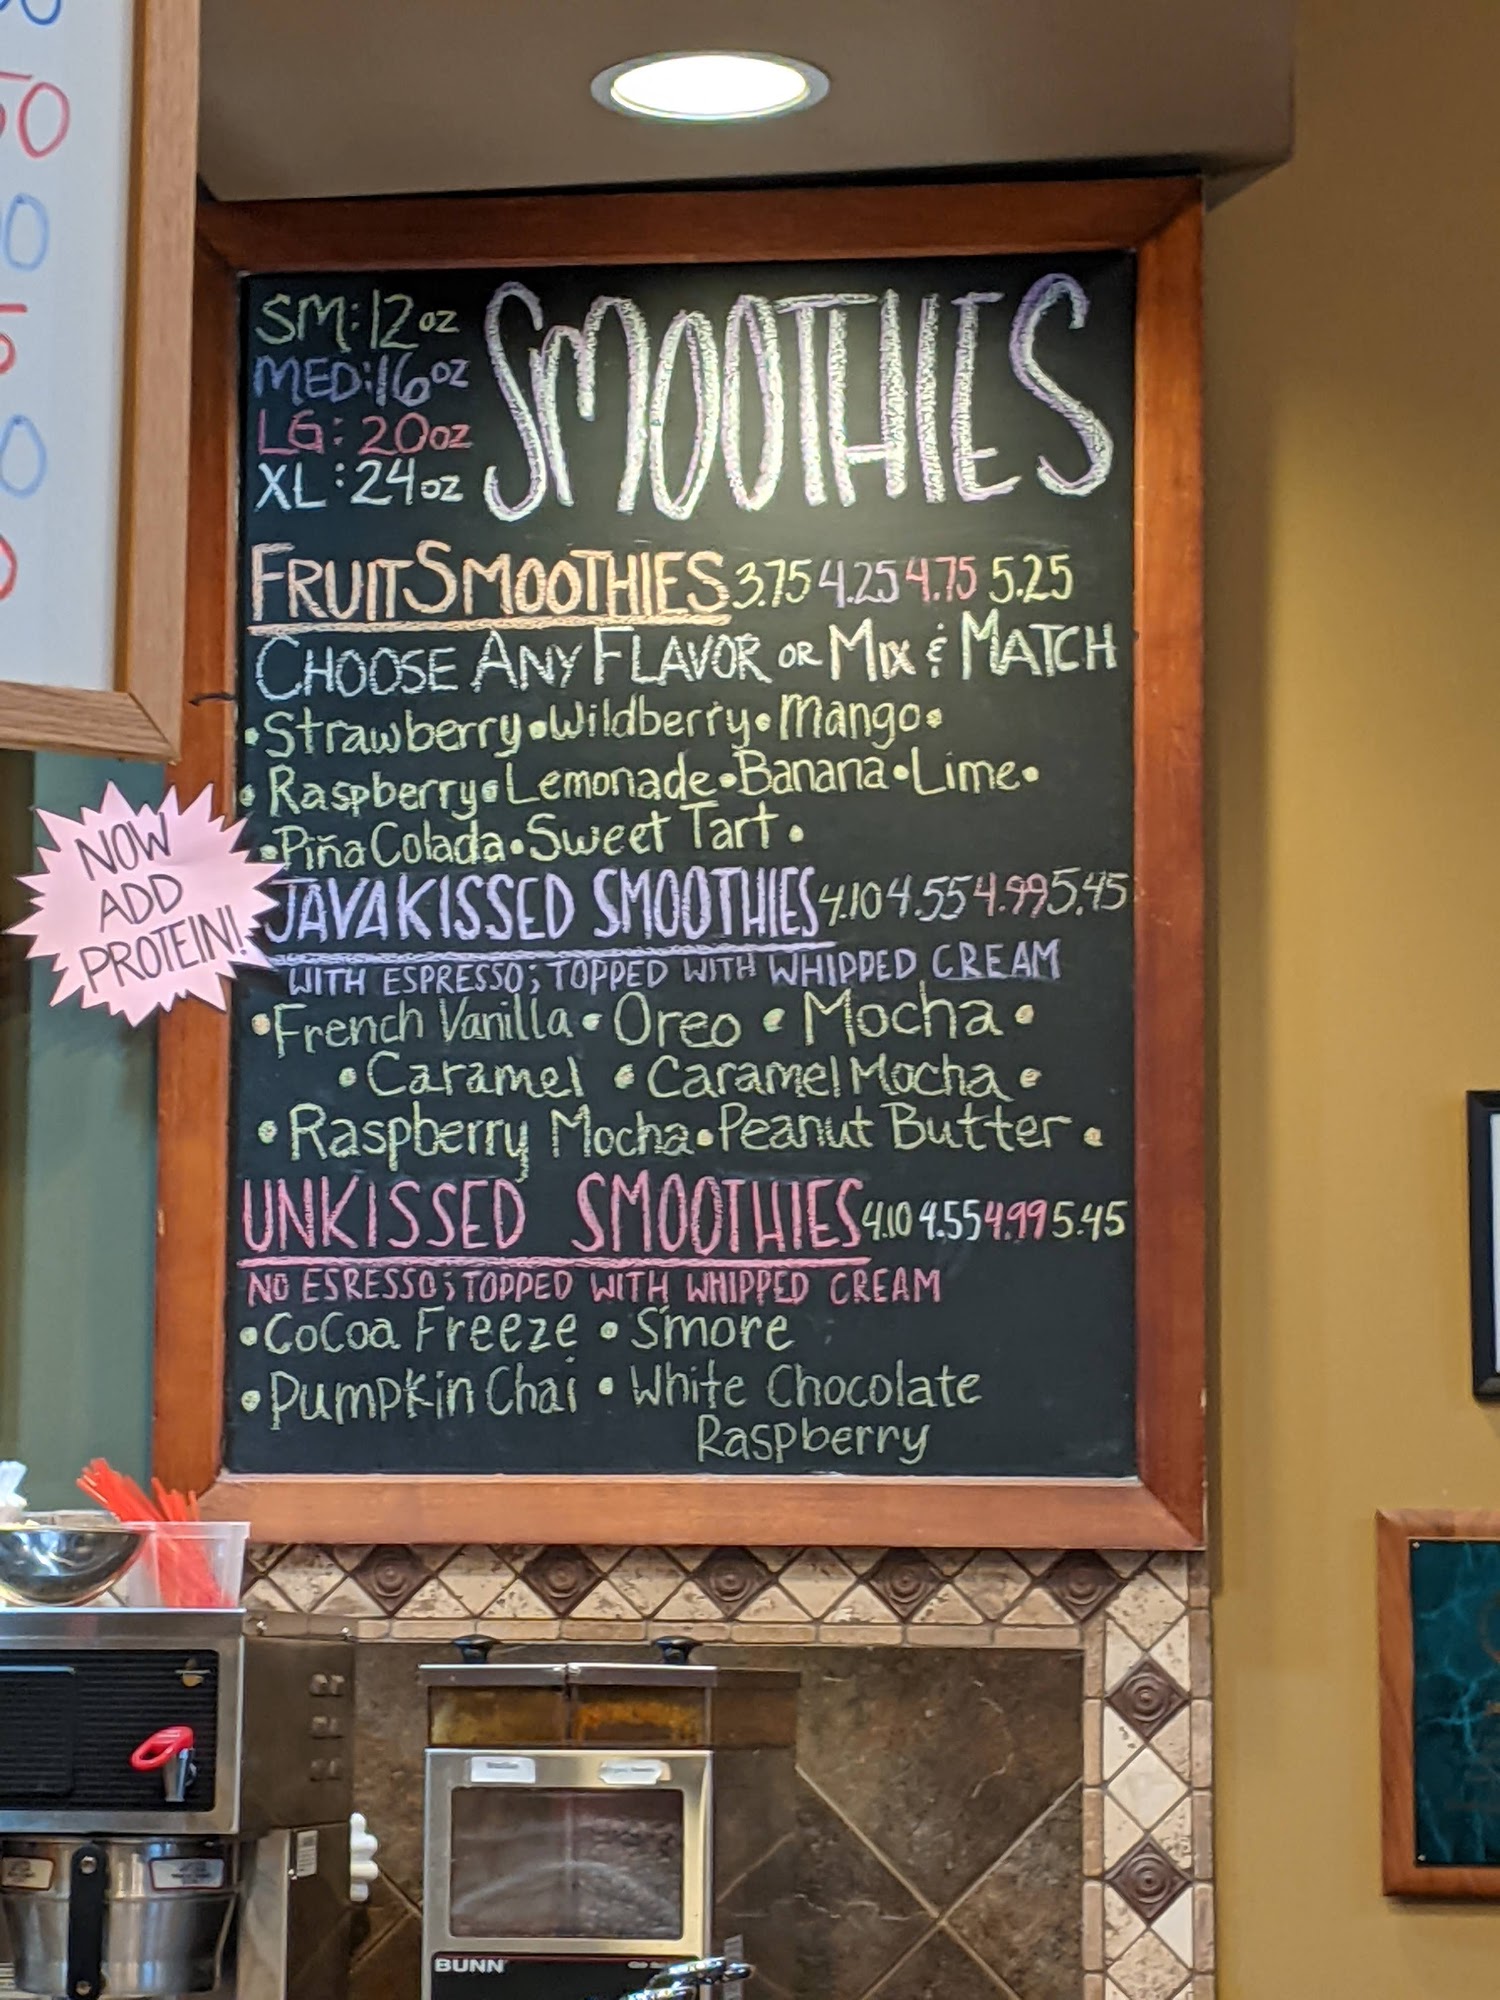 SM: 12oz
MED: 16oz
LG: 20oz
XL: 24oz
SMOOTHIES
FRUIT SMOOTHIES 3.75 4.25 4.75 5.25
CHOOSE ANY FLAVOR OR MIX & MATCH
• Strawberry • Wildberry • Mango •
• Raspberry • Lemonade • Banana • Lime •
• Piña Colada • Sweet Tart •
NOW
ADD
PROTEIN!
JAVAKISSED SMOOTHIES 4.10 4.55 4.99 5.45
WITH ESPRESSO; TOPPED WITH WHIPPED CREAM
• French Vanilla • Oreo • Mocha •
• Caramel • Caramel Mocha •
• Raspberry Mocha • Peanut Butter •
UNKISSED SMOOTHIES 4.10 4.55 4.99 5.45
NO ESRESSO; TOPPED WITH WHIPPED CREAM
• Cocoa Freeze • S'more
• Pumpkin Chai • White Chocolate
Raspberry
BUNN